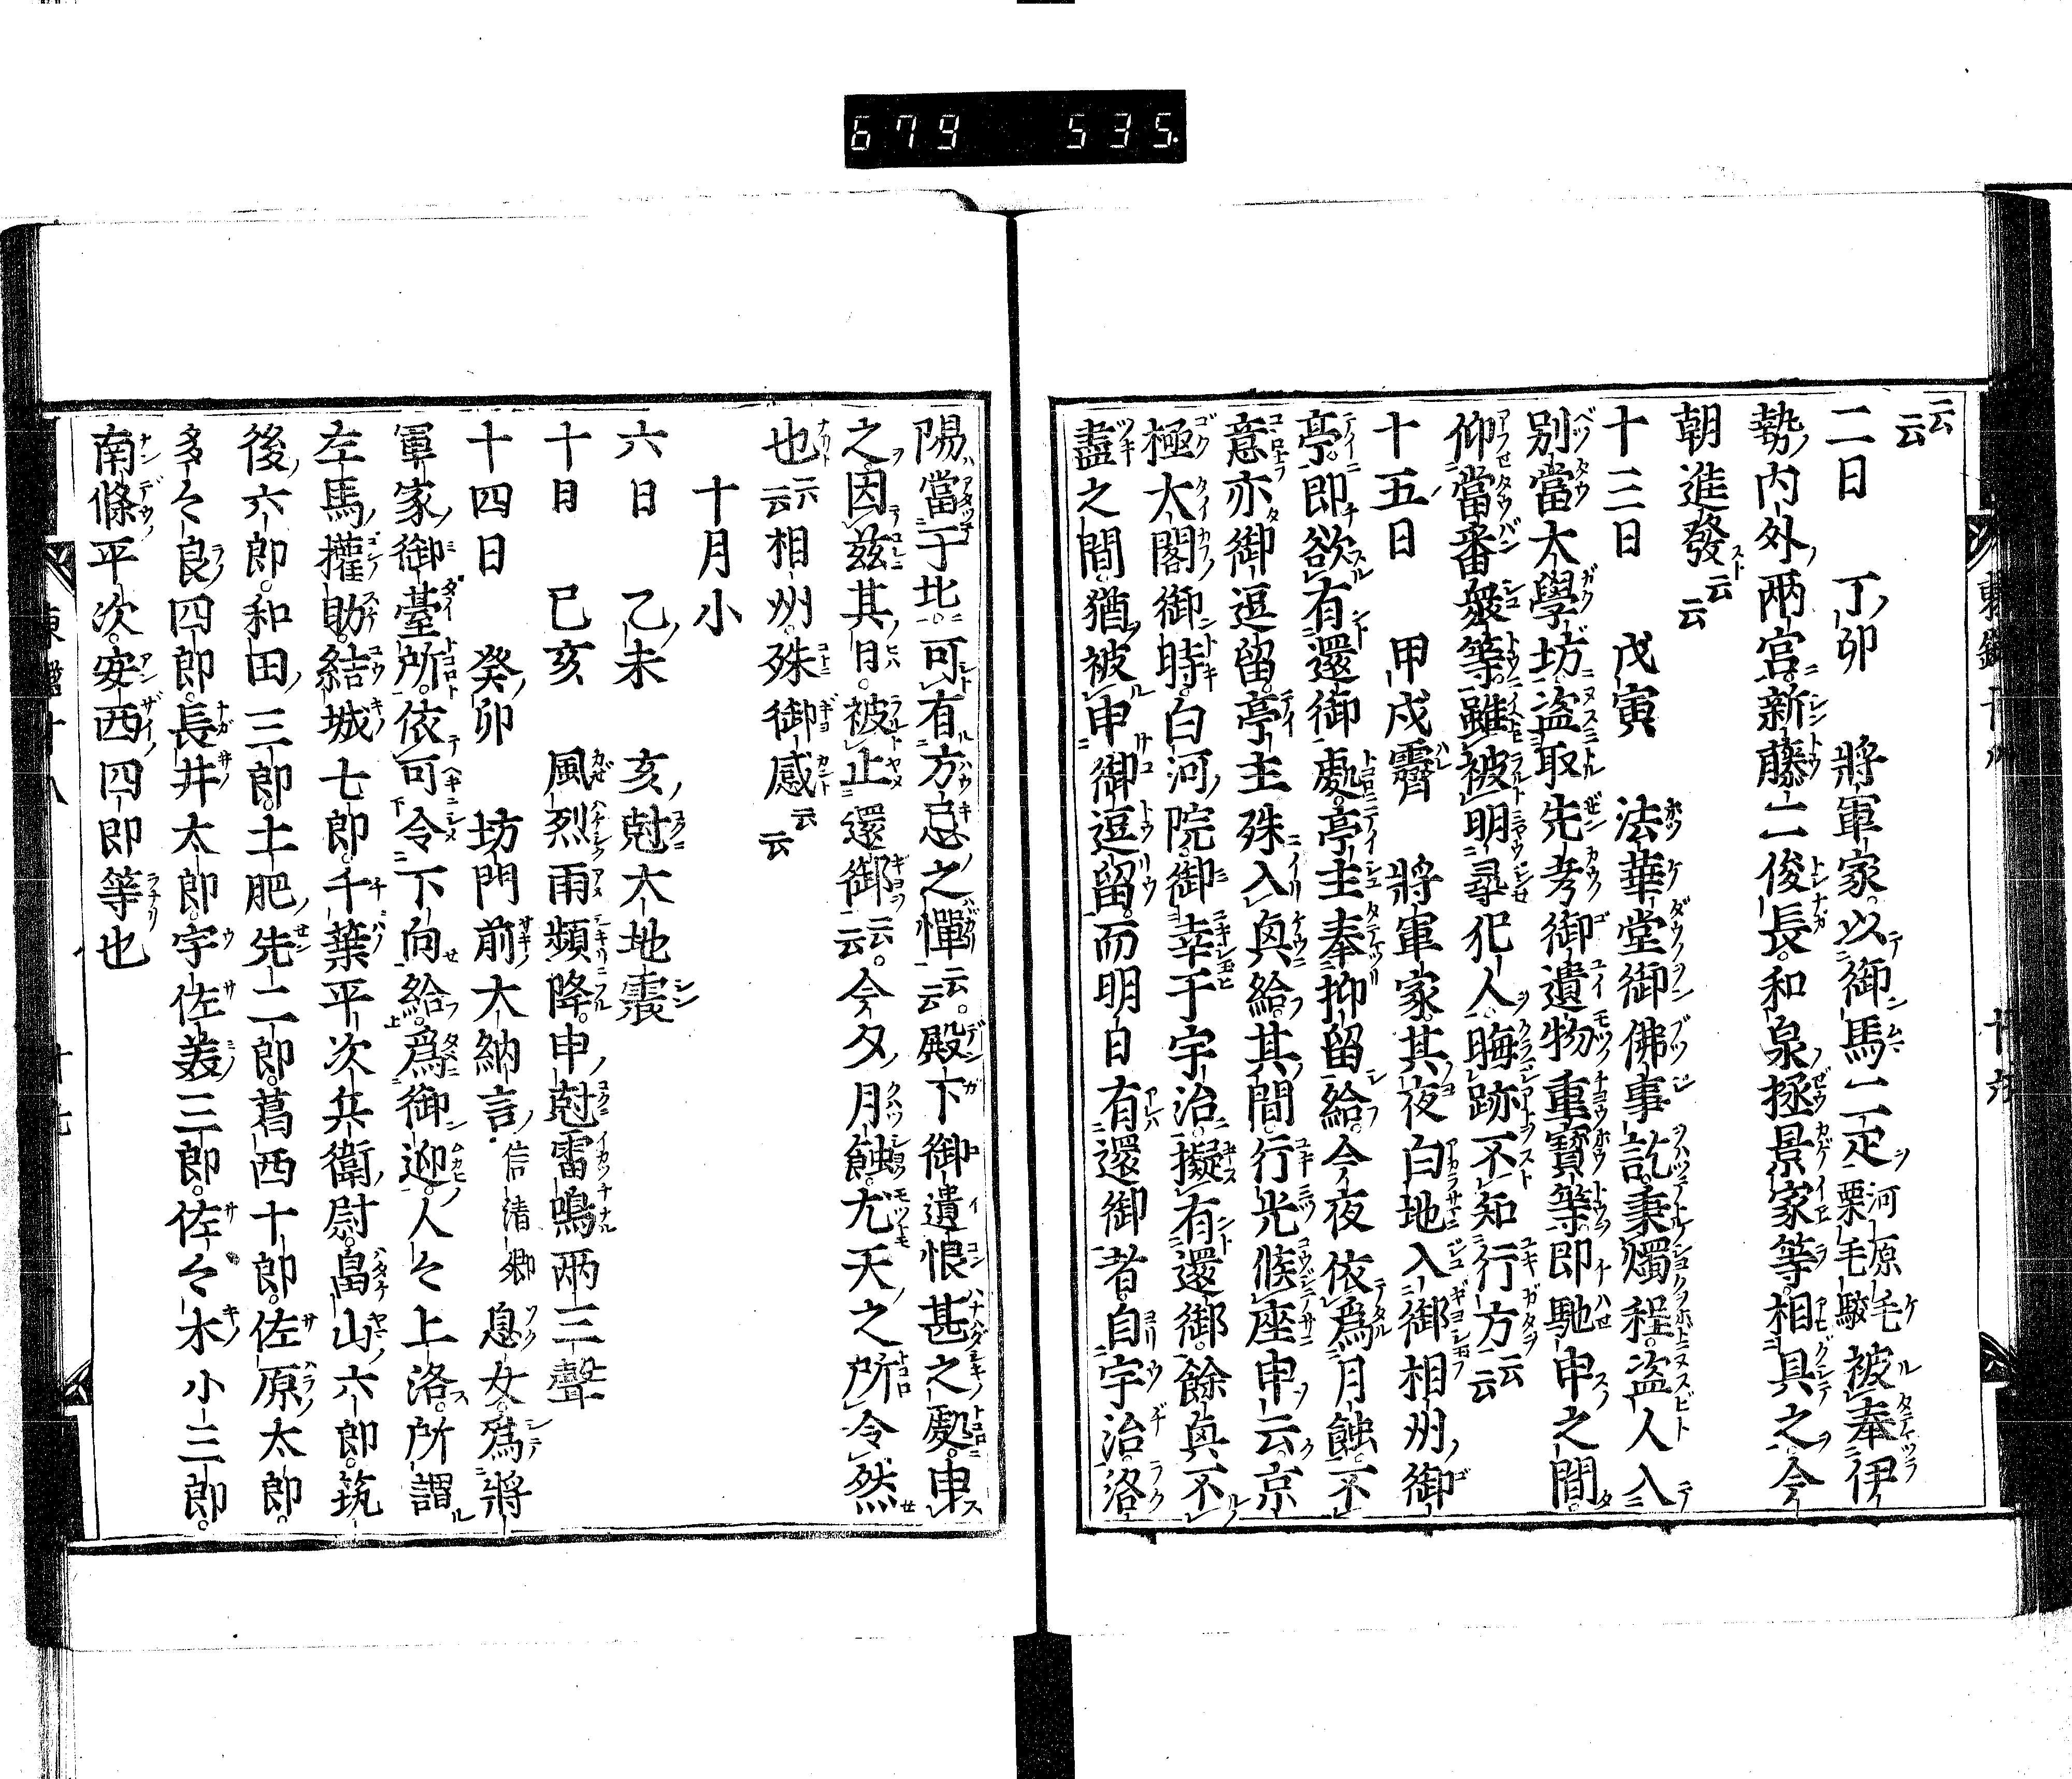 679 535.
云云
二日 丁卯 將軍家以御馬二疋河原毛栗毛駮被奉伊
勢内外兩宮新藤二俊長和泉掾景家等相具之今
朝進發云云
十三日 戊寅 法華堂御佛事訖秉燭程盗人入
別當大學坊盗取先考御遺物重寳等即馳申之間
仰當番衆等雖被明尋犯人晦跡不知行方云云
十五日 甲戌霽 將軍家其夜白地入御相州御
亭即欲有還御處亭主奉抑留給今夜依爲月蝕不
意亦御逗留亭主殊入興給其間行光候座申云京
極太閤御時白河院御幸于宇治擬有還御餘興不
盡之間猶被申御逗留而明日有還御者自宇治洛
陽當于北可有方忌之憚云云殿下御遺恨甚之處申
之因茲其日被止還御云云今夕月蝕尤天之所令然
也云云相州殊御感云云
十月小
六日 乙未 亥尅大地震
十日 己亥 風烈雨頻降申尅雷鳴兩三聲
十四日 癸卯 坊門前大納言信清卿息女爲將
軍家御臺所依可令下向給爲御迎人々上洛所謂
左馬權助結城七郎千葉平次兵衛尉畠山六郎筑
後六郎和田三郎土肥先二郎葛西十郎佐原太郎
多々良四郎長井太郎宇佐美三郎佐々木小三郎
南條平次安西四郎等也